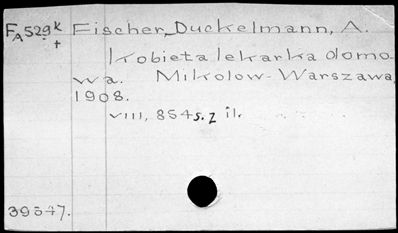 FA529k Fischer-Duckelmann, A.
+
Kobieta lekarka domo-
wa. Mikolow-Warszawa,
1908.
VIII, 854s. z il.
39547.